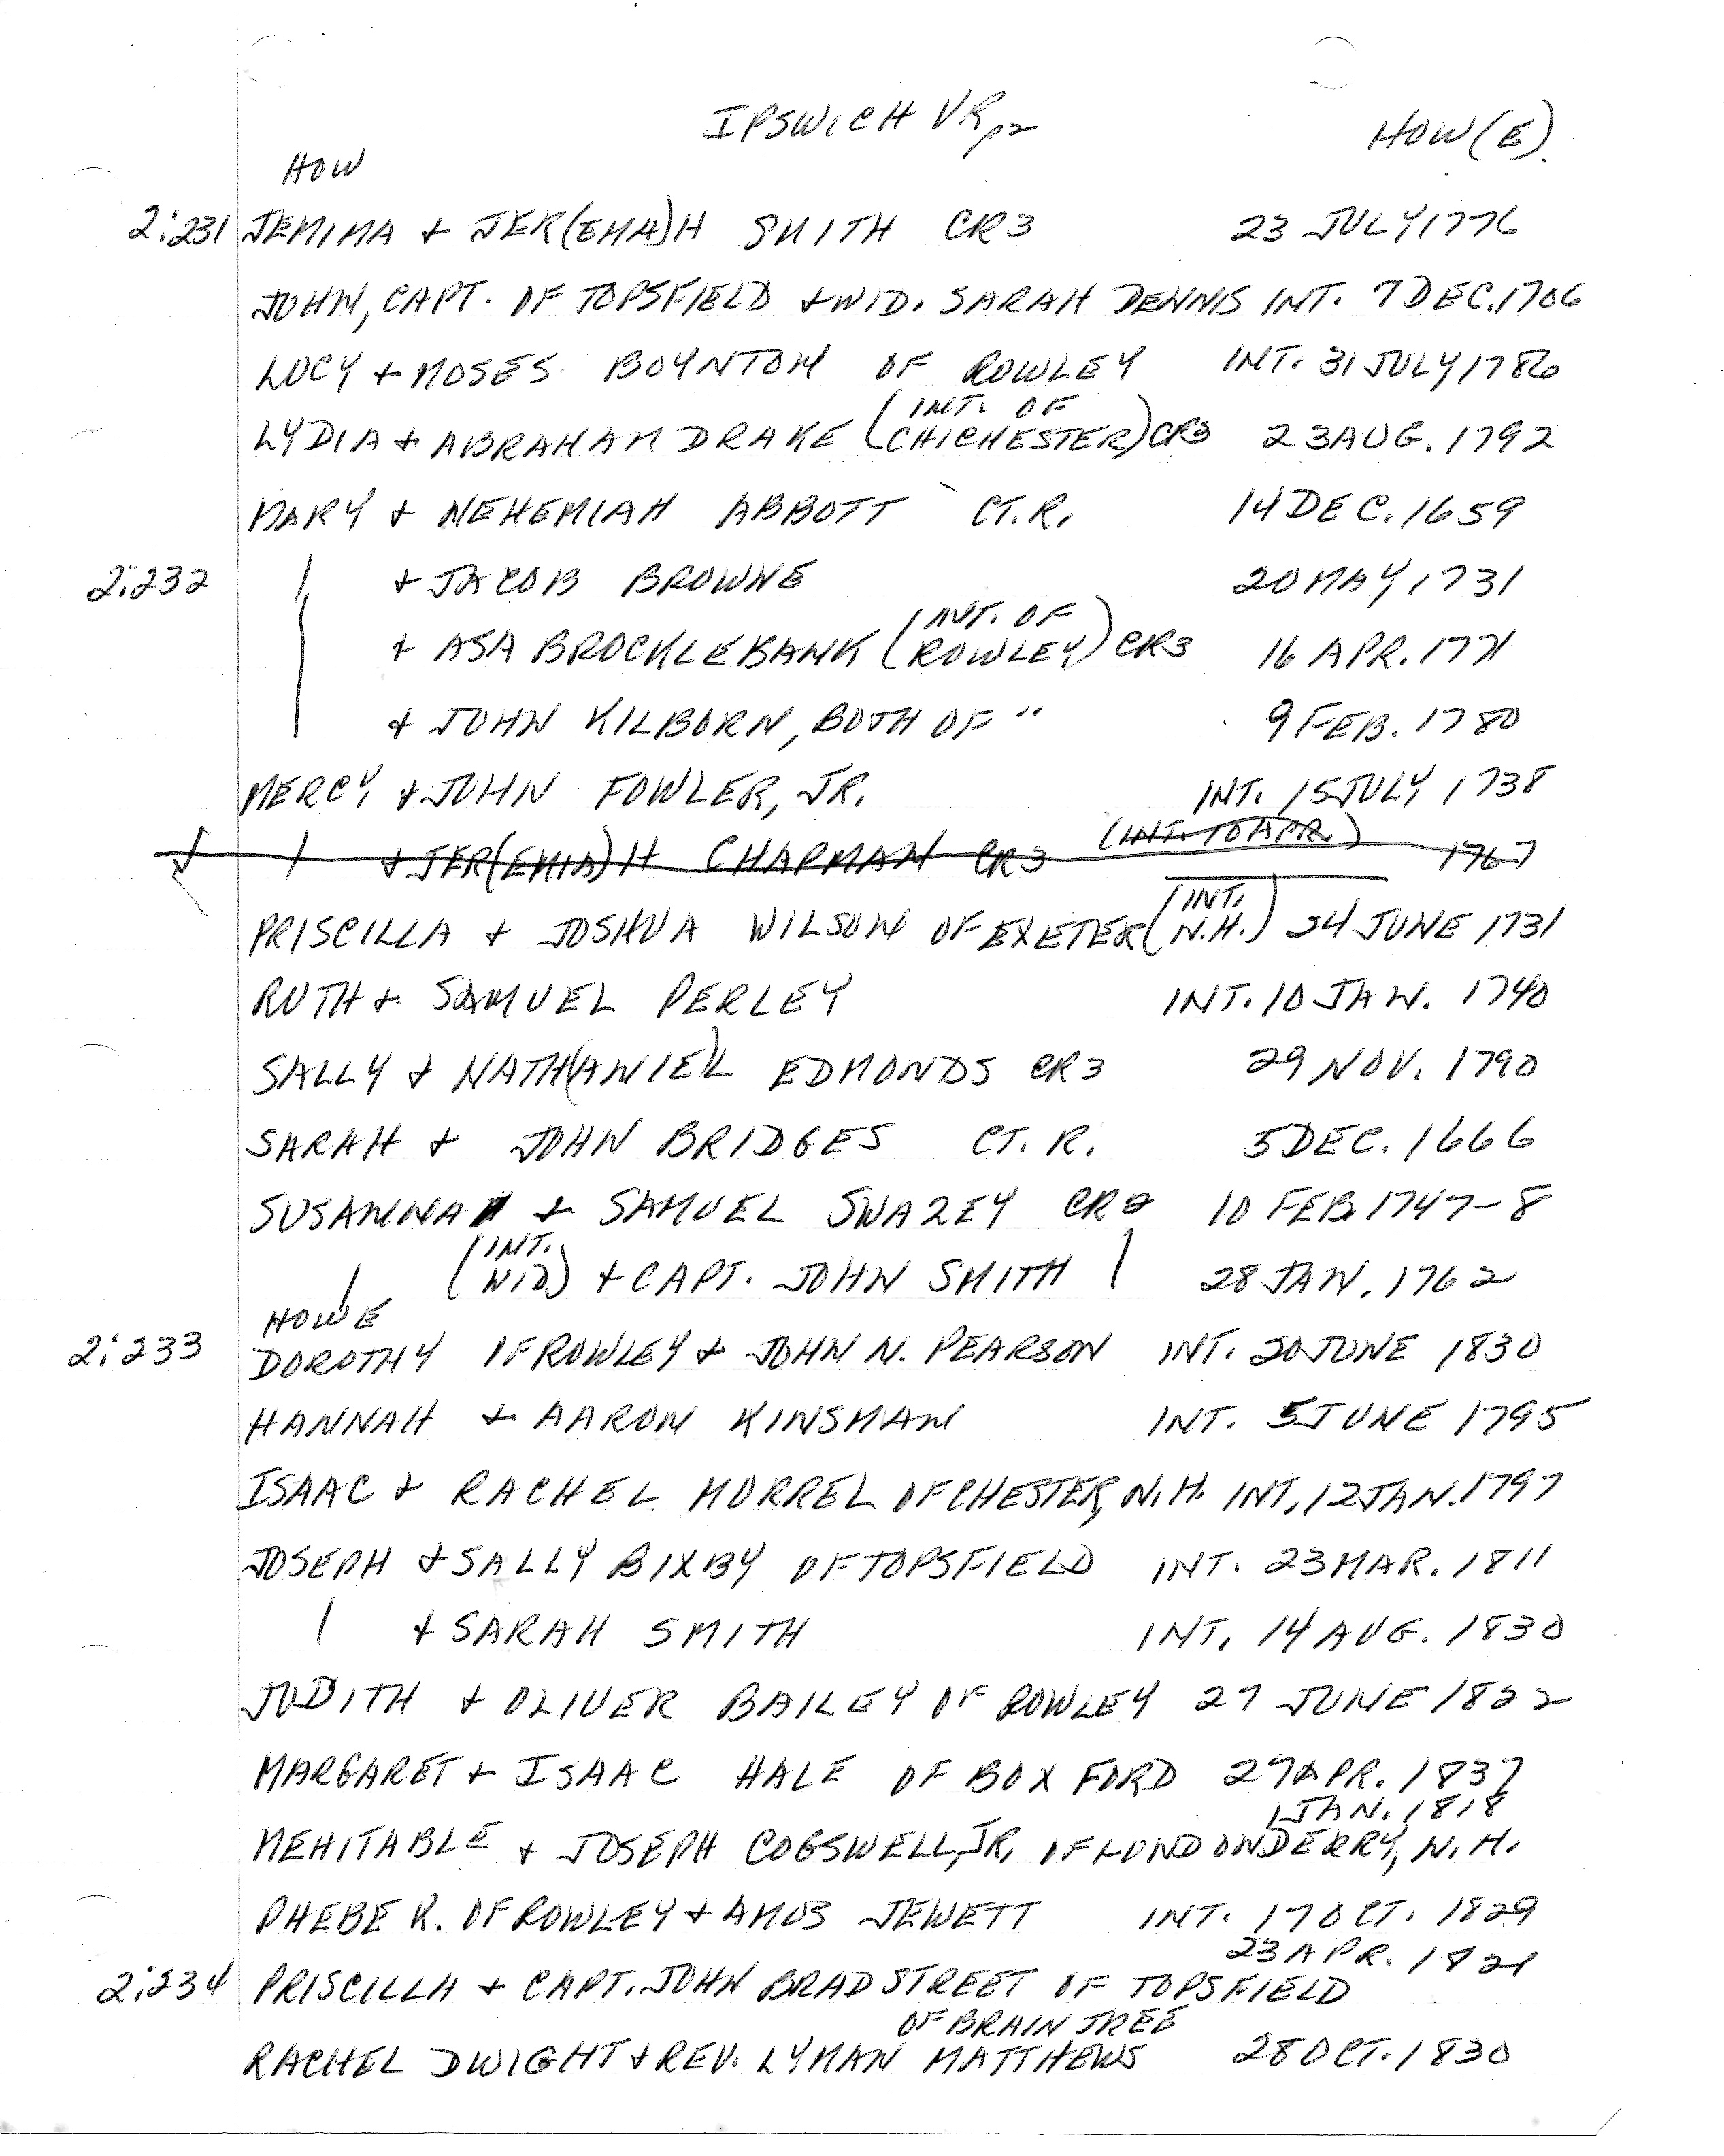 IPSWICH VR p2 HOW(E).
HOW
2:231 JEMIMA + JER(EMA)H SMITH CR3 23 JULY 1776
JOHN, CAPT. OF TOPSFIELD + WID. SARAH DENNIS INT. 7 DEC. 1706
LUCY + MOSES BOYNTON OF ROWLEY INT. 31 JULY 1786
LYDIA + ABRAHAM DRAKE (INT. OF CHICHESTER) CR3 23 AUG. 1792
MARY + NEHEMIAH ABBOTT CT. R. 14 DEC. 1659
2:232 | + JACOB BROWNE 20 MAY 1731
| + ASA BROCKLEBANK (INT. OF ROWLEY) CR3 16 APR. 1771
| + JOHN KILBORN, BOTH OF " 9 FEB. 1780
MERCY + JOHN FOWLER, JR. INT. 15 JULY 1738
| + JER(EMIA)H CHAPMAN CR3 (INT. 10 APR.) 1767
PRISCILLA + JOSHUA WILSON OF EXETER (INT. N.H.) 24 JUNE 1731
RUTH + SAMUEL PERLEY INT. 10 JAN. 1740
SALLY + NATH(ANIE)L EDMONDS CR3 29 NOV. 1790
SARAH + JOHN BRIDGES CT. R. 5 DEC. 1666
SUSANNA + SAMUEL SWAZEY CR2 10 FEB. 1747-8
| (INT. WID.) + CAPT. JOHN SMITH | 28 JAN. 1762
HOWE
2:233 DOROTHY OF ROWLEY + JOHN N. PEARSON INT. 20 JUNE 1830
HANNAH + AARON KINSMAN INT. 5 JUNE 1795
ISAAC + RACHEL MORREL OF CHESTER, N.H. INT. 12 JAN. 1797
JOSEPH + SALLY BIXBY OF TOPSFIELD INT. 23 MAR. 1811
| + SARAH SMITH INT. 14 AUG. 1830
JUDITH + OLIVER BAILEY OF ROWLEY 27 JUNE 1822
MARGARET + ISAAC HALE OF BOXFORD 27 APR. 1837
1 JAN. 1818
MEHITABLE + JOSEPH COGSWELL, JR. OF LONDONDERRY, N.H.
PHEBE K. OF ROWLEY + AMOS JEWETT INT. 17 OCT. 1829
23 APR. 1821
2:234 PRISCILLA + CAPT. JOHN BRADSTREET OF TOPSFIELD
OF BRAINTREE
RACHEL DWIGHT + REV. LYMAN MATTHEWS 28 OCT. 1830